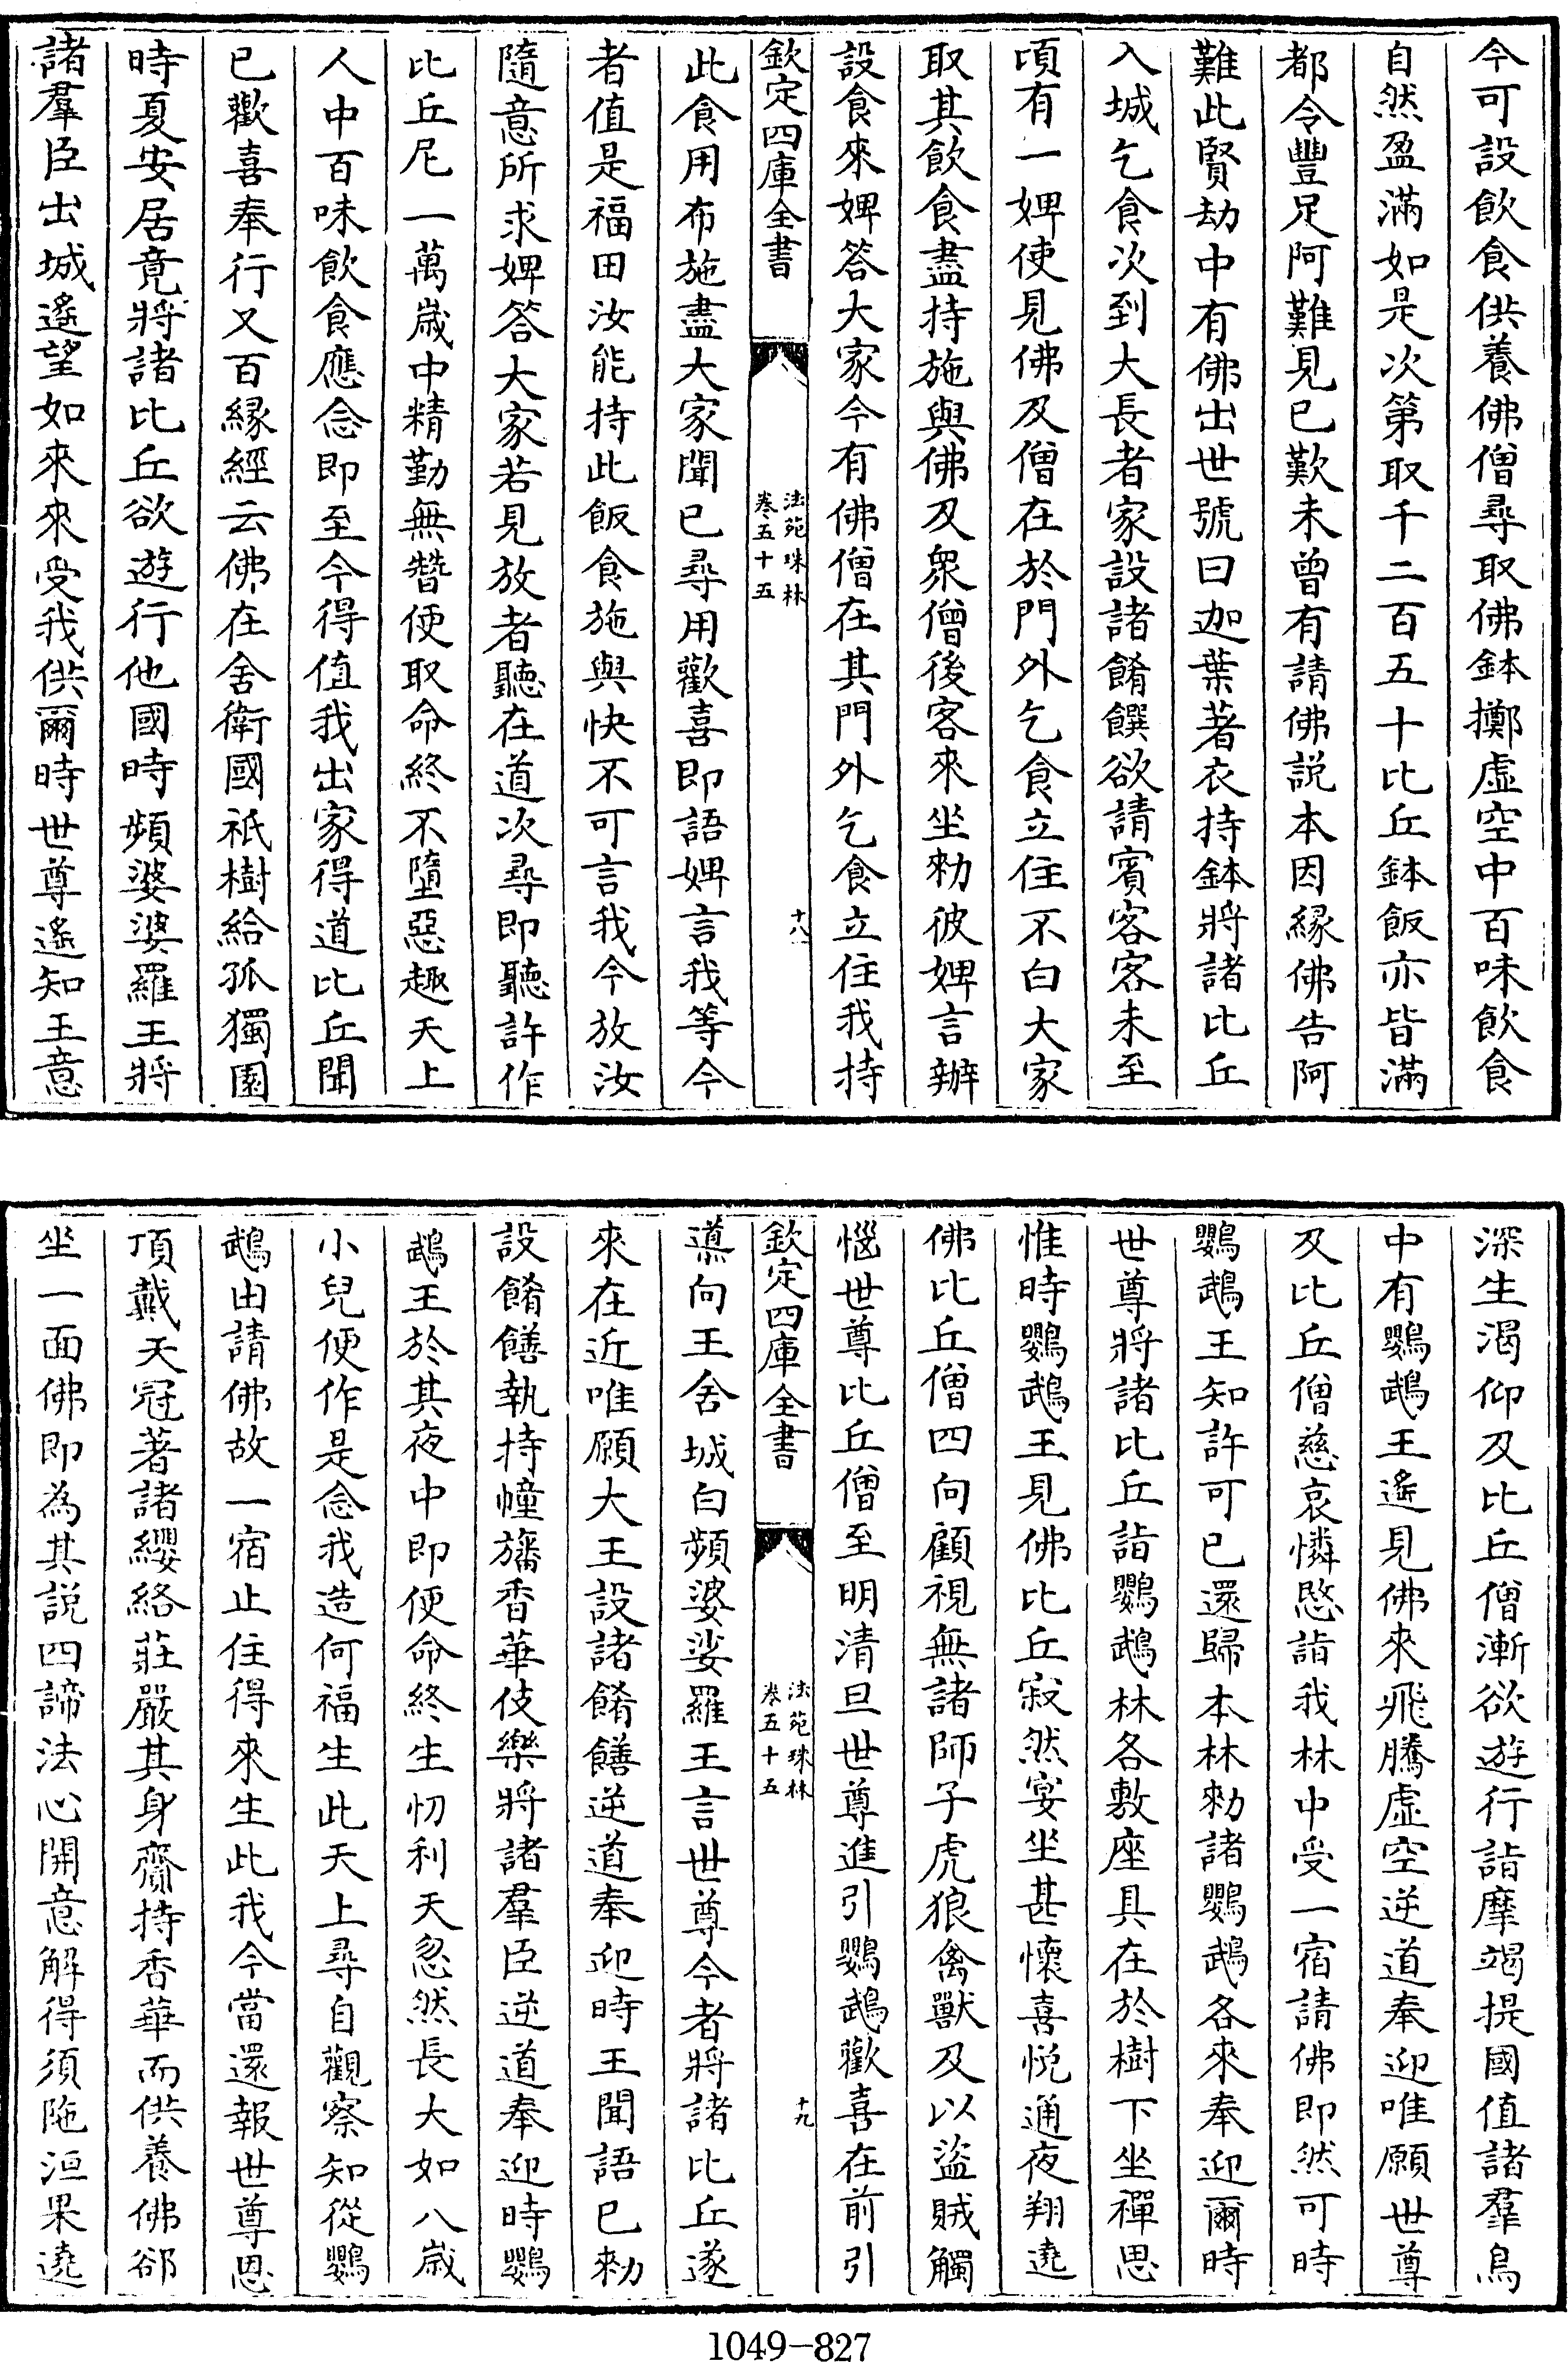 今可設飲食供養佛僧尋取佛鉢擲虛空中百味飲食
自然盈滿如是次第取千二百五十比丘鉢飯亦皆滿
都令豐足阿難見已歎未曾有請佛説本因縁佛告阿
難此賢劫中有佛出世號曰迦葉著衣持鉢將諸比丘
入城乞食次到大長者家設諸餚饌欲請賓客客未至
頃有一婢使見佛及僧在於門外乞食立住不白大家
取其飲食盡持施與佛及衆僧後客來坐勑彼婢言辦
設食來婢答大家今有佛僧在其門外乞食立住我持
欽定四庫全書
法苑珠林
卷五十五
十八
此食用布施盡大家聞已尋用歡喜即語婢言我等今
者值是福田汝能持此飯食施與快不可言我今放汝
隨意所求婢答大家若見放者聽在道次尋即聽許作
比丘尼一萬歲中精勤無替便取命終不墮惡趣天上
人中百味飲食應念即至今得值我出家得道比丘聞
已歡喜奉行又百縁經云佛在舍衛國祇樹給孤獨園
時夏安居竟將諸比丘欲遊行他國時頻婆婆羅王將
諸羣臣出城遙望如來來受我供爾時世尊遙知王意
深生渴仰及比丘僧漸欲遊行詣摩竭提國值諸羣鳥
中有鸚鵡王遙見佛來飛騰虛空逆道奉迎唯願世尊
及比丘僧慈哀憐愍詣我林中受一宿請佛即然可時
鸚鵡王知許可已還歸本林勑諸鸚鵡各來奉迎爾時
世尊將諸比丘詣鸚鵡林各敷座具在於樹下坐禪思
惟時鸚鵡王見佛比丘寂然宴坐甚懷喜悦通夜翔遶
佛比丘僧四向顧視無諸師子虎狼禽獸及以盜賊觸
惱世尊比丘僧至明清旦世尊進引鸚鵡歡喜在前引
欽定四庫全書
法苑珠林
卷五十五
十九
導向王舍城白頻婆娑羅王言世尊今者將諸比丘遂
來在近唯願大王設諸餚饍逆道奉迎時王聞語已勑
設餚饍執持幢旛香華伎樂將諸羣臣逆道奉迎時鸚
鵡王於其夜中即便命終生忉利天忽然長大如八歲
小兒便作是念我造何福生此天上尋自觀察知從鸚
鵡由請佛故一宿止住得來生此我今當還報世尊恩
頂戴天冠著諸纓絡莊嚴其身齎持香華而供養佛郤
坐一面佛即為其説四諦法心開意解得須陁洹果遶
1049-827